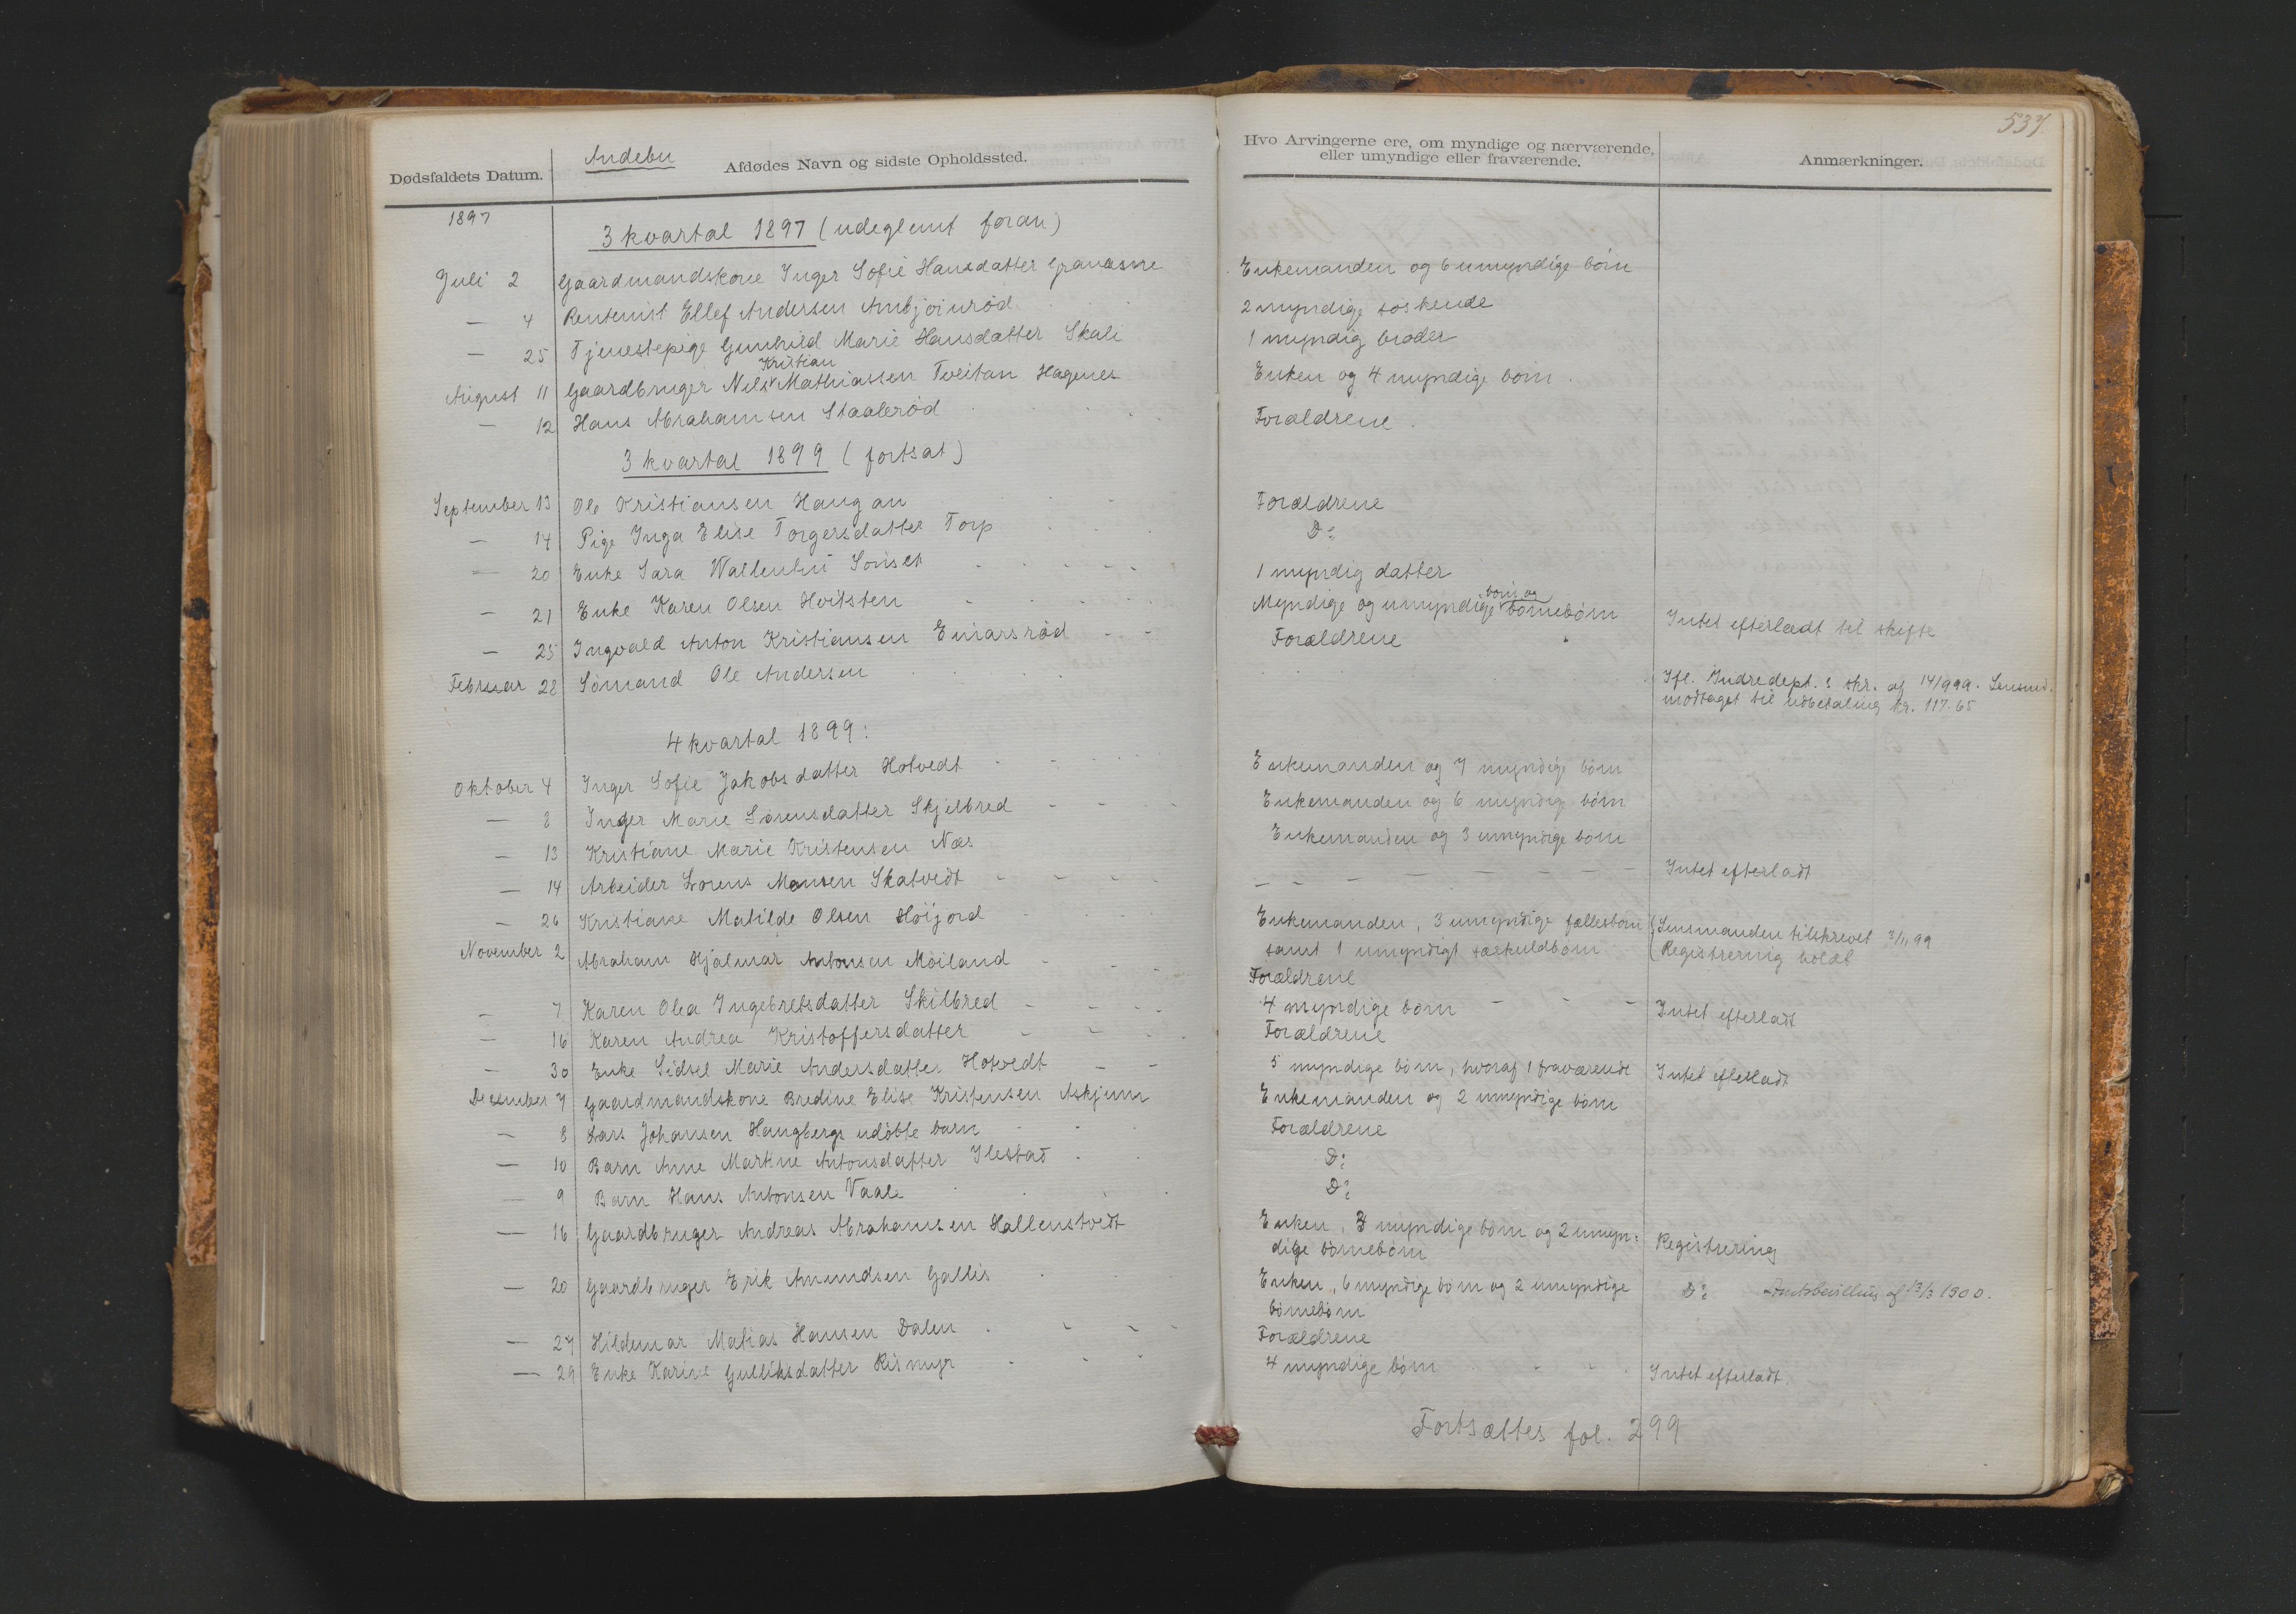 537.
Andebu
Dødsfaldets Datum. Afdødes Navn og sidste Opholdssted. Hvo Arvingerne ere, om myndige og nærværende, eller umyndige eller fraværende. Anmærkninger.
1897
3 kvartal 1897 (udeglemt foran)
Juli 2 Gaardmandskone Inger Sofie Hansdatter Enkemanden og 6 umyndige børn
— 4 Rentenist Ellef Andersen 2 myndige søskende
— 25 Tjenestepige Gunhild Marie Hansdatter Skali 1 myndig broder
Kristian
August 11 Gaardbruger Nils Mathiassen Tveitan Hagenes Enken og 4 myndige børn
— 12 Hans Abrahamsen Staalerød Forældrene
3 kvartal 1899 (fortsat)
September 13 Ole Kristiansen Haugan Forældrene
— 14 Pige Inga Elise Torgersdatter Torp Do
— 20 Enke Sara 1 myndig datter
børn og
— 21 Enke Karen Olsen Hvitsten Myndige og umyndige børnebørn Intet efterladt til skifte
— 25 Ingvald Anton Kristiansen Einarsrød Forældrene
Februar 28 Sømand Ole Andersen Ifl. Indredept.s skr. af 14/9 99. Lensmd.
modtaget til udbetaling kr. 117.65
4 kvartal 1899:
Oktober 4 Inger Sofie Jakobsdatter Hotvedt Enkemanden og 7 myndige børn
— 8 Inger Marie Sørensdatter Skjelbred Enkemanden og 6 myndige børn
— 13 Kristiane Marie Kristensen Næs Enkemanden og 3 umyndige børn
— 14 Arbeider Lorens Monsen Skatvedt — — — — — — — — Intet efterladt
— 26 Kristiane Matilde Olsen Høijord Enkemanden, 3 umyndige fællesbørn (Lensmanden tilskrevet 3/11 99
samt 1 umyndigt særkuldbørn (Registrering holdt
November 2 Abraham Hjalmar Antonsen Møiland Forældrene
— 7 Karen Olea Ingebretsdatter Skilbred 4 myndige børn Intet efterladt
— 16 Karen Andrea Kristoffersdatter Forældrene
— 30 Enke Sidsel Marie Andersdatter Hotvedt 5 myndige børn, hvoraf 1 fraværende Intet efterladt
December 7 Gaardmandskone Bredine Elise Kristensen Askjum Enkemanden og 2 umyndige børn
— 8 Lars Johansen Haugbergs udøbte barn Forældrene
— 10 Barn Anne Martine Antonsdatter Ilestad Do
— 9 Barn Hans Antonsen Vaale Do
— 16 Gaardbruger Andreas Abrahamsen Hallenstvedt Enken, 3 myndige børn og 2 umyn-
dige børnebørn Registrering
— 20 Gaardbruger Erik Amundsen Gallis Enken, 6 myndige børn og 2 umyndige
børnebørn Do Amtsbevilling af 13/3 1900.
— 27 Hildemar Matias Hansen Dalen Forældrene
— 29 Enke Karine Gulliksdatter Rismyr 4 myndige børn Intet efterladt.
Fortsættes fol. 299